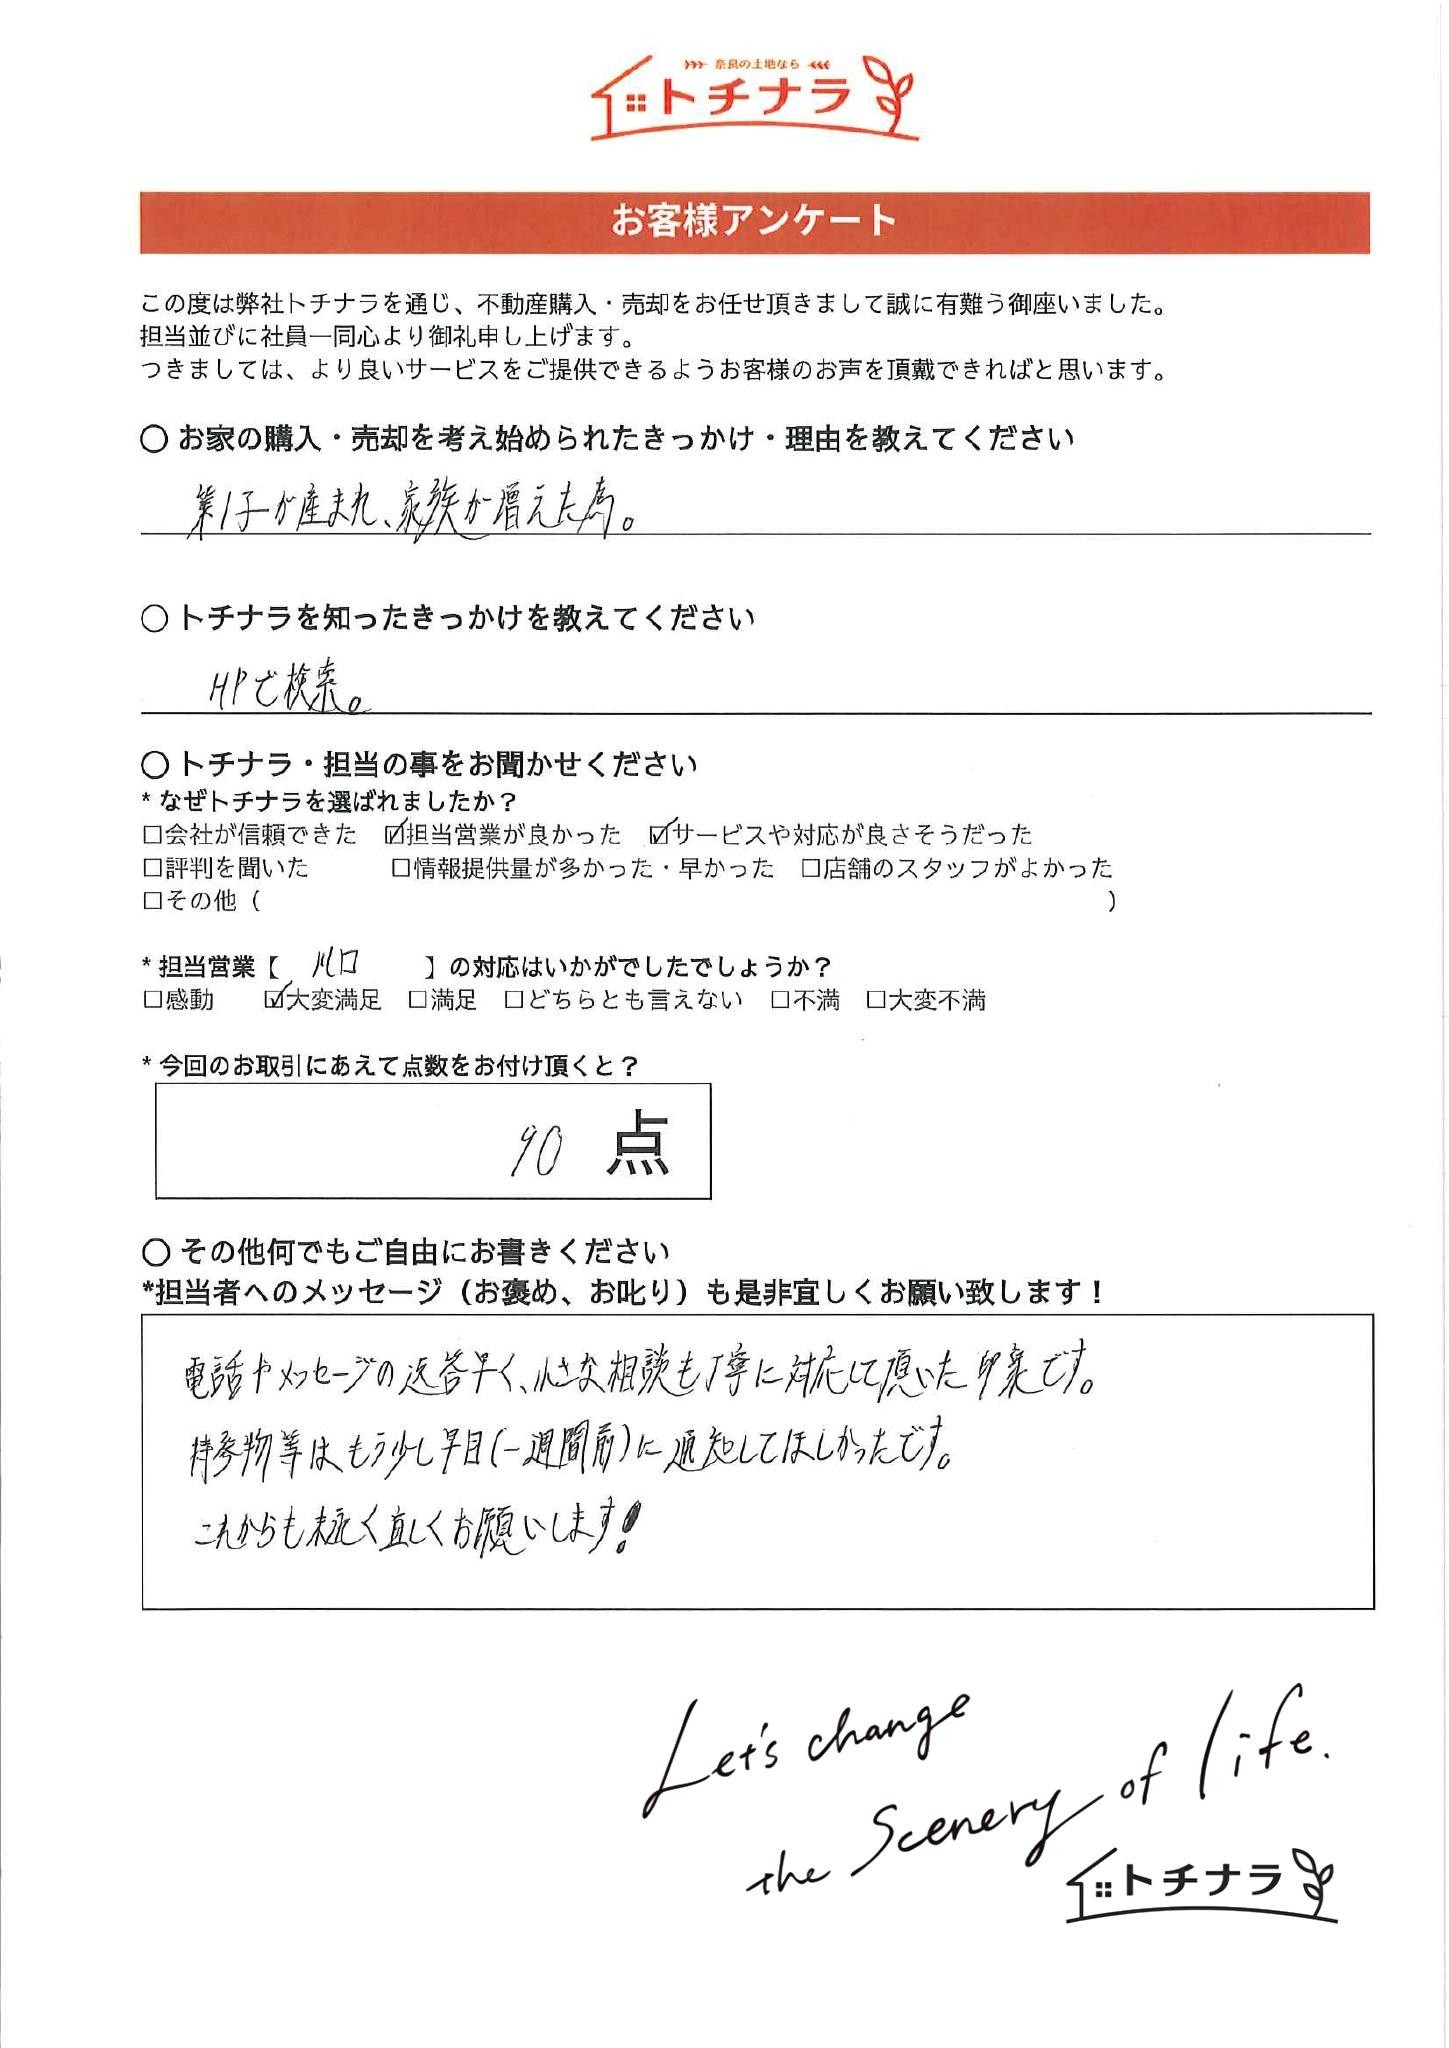 奈良の土地なら
トチナラ
お客様アンケート
この度は弊社トチナラを通じ、不動産購入・売却をお任せ頂きまして誠に有難う御座いました。
担当並びに社員一同心より御礼申し上げます。
つきましては、より良いサービスをご提供できるようお客様のお声を頂戴できればと思います。
○ お家の購入・売却を考え始められたきっかけ・理由を教えてください
第1子が産まれ、家族が増えた為。
○ トチナラを知ったきっかけを教えてください
HPで検索。
○ トチナラ・担当の事をお聞かせください
* なぜトチナラを選ばれましたか？
□会社が信頼できた ☑担当営業が良かった ☑サービスや対応が良さそうだった
□評判を聞いた □情報提供量が多かった・早かった □店舗のスタッフがよかった
□その他（ ）
* 担当営業【 川口 】の対応はいかがでしたでしょうか？
□感動 ☑大変満足 □満足 □どちらとも言えない □不満 □大変不満
* 今回のお取引にあえて点数をお付け頂くと？
90 点
○ その他何でもご自由にお書きください
*担当者へのメッセージ（お褒め、お叱り）も是非宜しくお願い致します！
電話やメッセージの返答早く、小さな相談も丁寧に対応して頂いた印象です。
持参物等は、もう少し早目(一週間前)に通知してほしかったです。
これからも末永く宜しくお願いします！
Let's change
the Scenery of life.
トチナラ